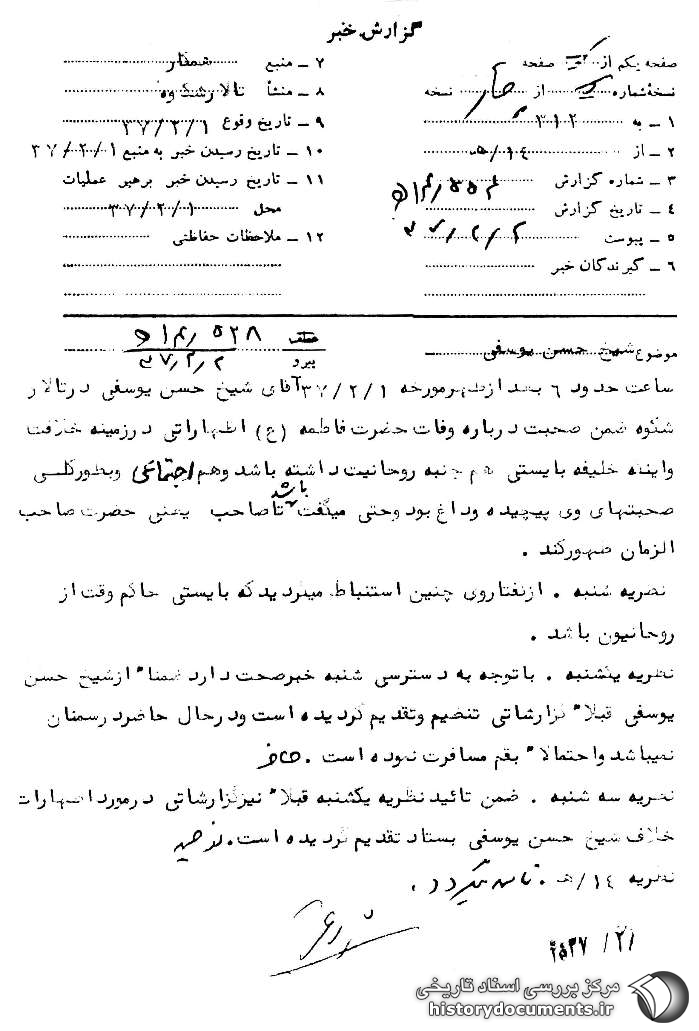 گزارش خبر
صفحه یکم از یک صفحه
نسخهٔ شماره یک از چهار نسخه
۱ ــ به ۳۱۲
۲ ــ از ۱۴/هـ
۳ ــ شماره گزارش
۴ ــ تاریخ گزارش ۳۷/۲/۲
۵ ــ پیوست
۶ ــ گیرندگان خبر
۷ ــ منبع همکار
۸ ــ منشأ تالار شکوه
۹ ــ تاریخ وقوع ۳۷/۲/۱
۱۰ ــ تاریخ رسیدن خبر به منبع ۳۷/۲/۱
۱۱ ــ تاریخ رسیدن خبر برهبر عملیات
محل ۳۷/۲/۱
۱۲ ــ ملاحظات حفاظتی
موضوع شیخ حسن یوسفی
پیرو ۳۷/۲/۲
ساعت حدود ۶ بعد ازظهر مورخه ۳۷/۲/۱ آقای شیخ حسن یوسفی درتالار
شکوه ضمن صحبت درباره وفات حضرت فاطمه (ع) اظهاراتی درزمینه خلافت
واینکه خلیفه بایستی هم جنبه روحانیت داشته باشد وهم اجتماعی وبطورکلی
صحبتهای وی پیچیده وداغ بود وحتی میگفت باشد تاصاحب یعنی حضرت صاحب
الزمان ظهورکند .
نظریه شنبه . ازگفتاروی چنین استنباط میگردیدکه بایستی حاکم وقت از
روحانیون باشد .
نظریه یکشنبه . باتوجه به دسترسی شنبه خبرصحت دارد ضمنا" ازشیخ حسن
یوسفی قبلا" گزارشاتی تنظیم وتقدیم گردیده است ودرحال حاضردرسمنان
نمیباشد واحتمالا" بقم مسافرت نموده است .
نظریه سه شنبه . ضمن تائید نظریه یکشنبه قبلا" نیزگزارشاتی درمورد اظهارات
خلاف شیخ حسن یوسفی بستاد تقدیم گردیده است.
نظریه ۱۴/هـ .
مرکز بررسی اسناد تاریخی
historydocuments.ir